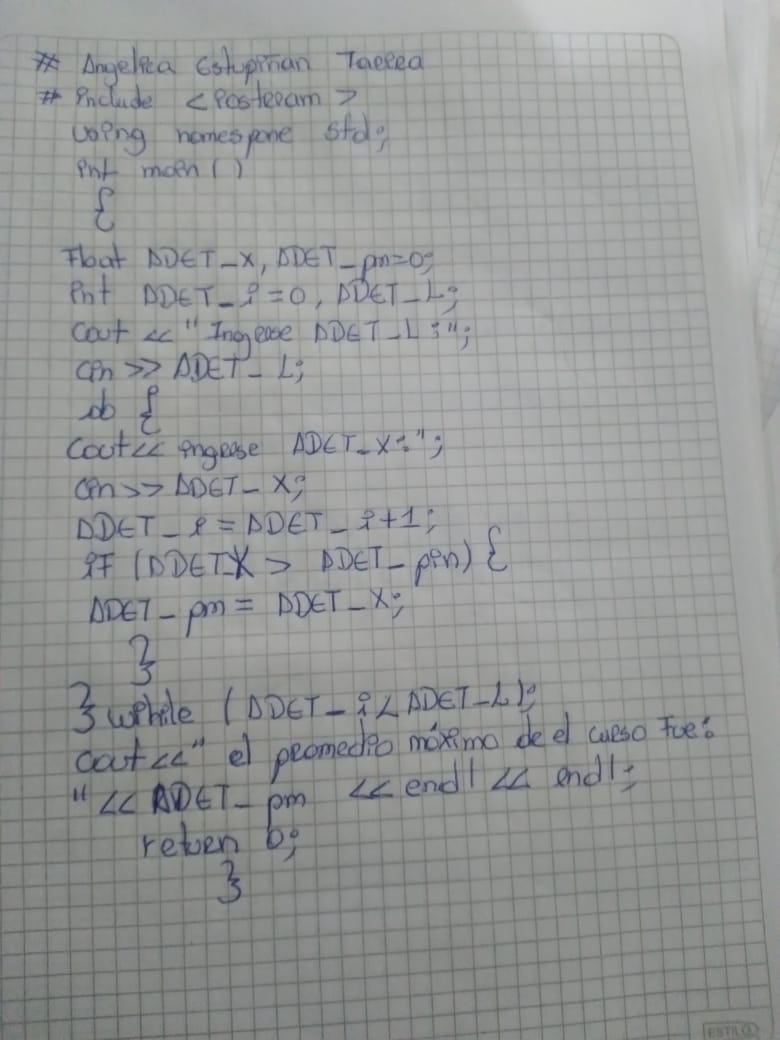 # Angelica Estupiñan Taeeea
# include <iosteeam>
using namespone std;
int main()
{
Float ADET_X, ADET_pm=0;
int ADET_i=0, ADET_L;
Cout << " Ingease ADET_L :";
cin >> ADET_L;
do {
Cout << ingease ADET_X:";
cin >> ADET_X;
ADET_i = ADET_i+1;
if (ADETX > ADET_pin) {
ADET_pm = ADET_X;
}
} while (ADET_i < ADET_L);
cout <<" el peomedio máximo de el cueso Fue:
" << ADET_pm << endl << endl;
retuen 0;
}
ESTILO